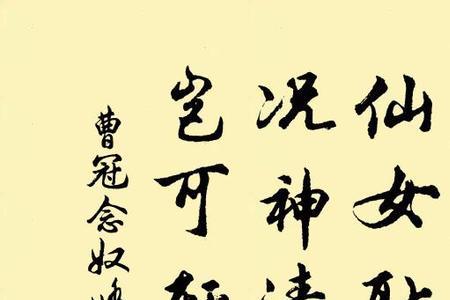 仙女
况神清
岂可
曹冠念奴